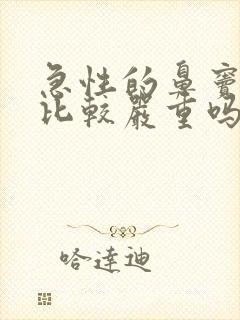 急性的鼻窦
比较严重吗
哈达迪